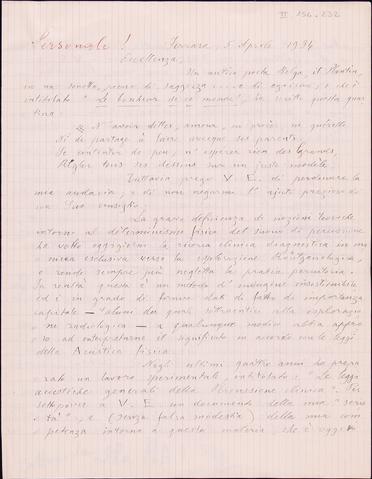 II 156-232
Personale ! Ferrara, 5 Aprile 1934
Eccellenza,
Un antico poeta Belga, il Plantin,
in un sonetto, pieno di saggezza .... e di egoismo, e che è
intitolato "Le bonheur de ce monde", ha scritto questa quar
tina
N'avoir dettes, amour, ni procès, ni querelle
Ni de partage à faire avecque ses parents.
Se contenter de peu, n'espérer rien des Grands,
Régler tous ses desseins sur un juste modèle.
Tuttavia prego V. E. di perdonare la
mia audacia, e di non negarmi l'aiuto prezioso di
un Suo consiglio.
La grave deficienza di nozioni teoriche
intorno al determinismo fisico del suono di percussione
ha volto oggigiorno la ricerca clinica diagnostica in mo
do quasi esclusiva verso la esplorazione Röntgenologica,
e rende sempre più negletta la pratica percuitoria.
In realtà questa è un metodo d'indagine insostituibile
ed è in grado di fornire dati di fatto di importanza
capitale — alcuni dei quali sottraentisi alla esplorazio
ne radiologica — a qualunque medico abbia appre
so ad interpretarne il significato in accordo con le leggi
della Acustica fisica.
Negli ultimi quattro anni ho prepa
rato un lavoro sperimentale, intitolato: "Le leggi
acustiche generali della Percussione clinica". Per
sottoporre a V. E. un documento della mia "serie
tà", e (senza falsa modestia) della mia com
petenza intorno a questa materia, che è oggetto